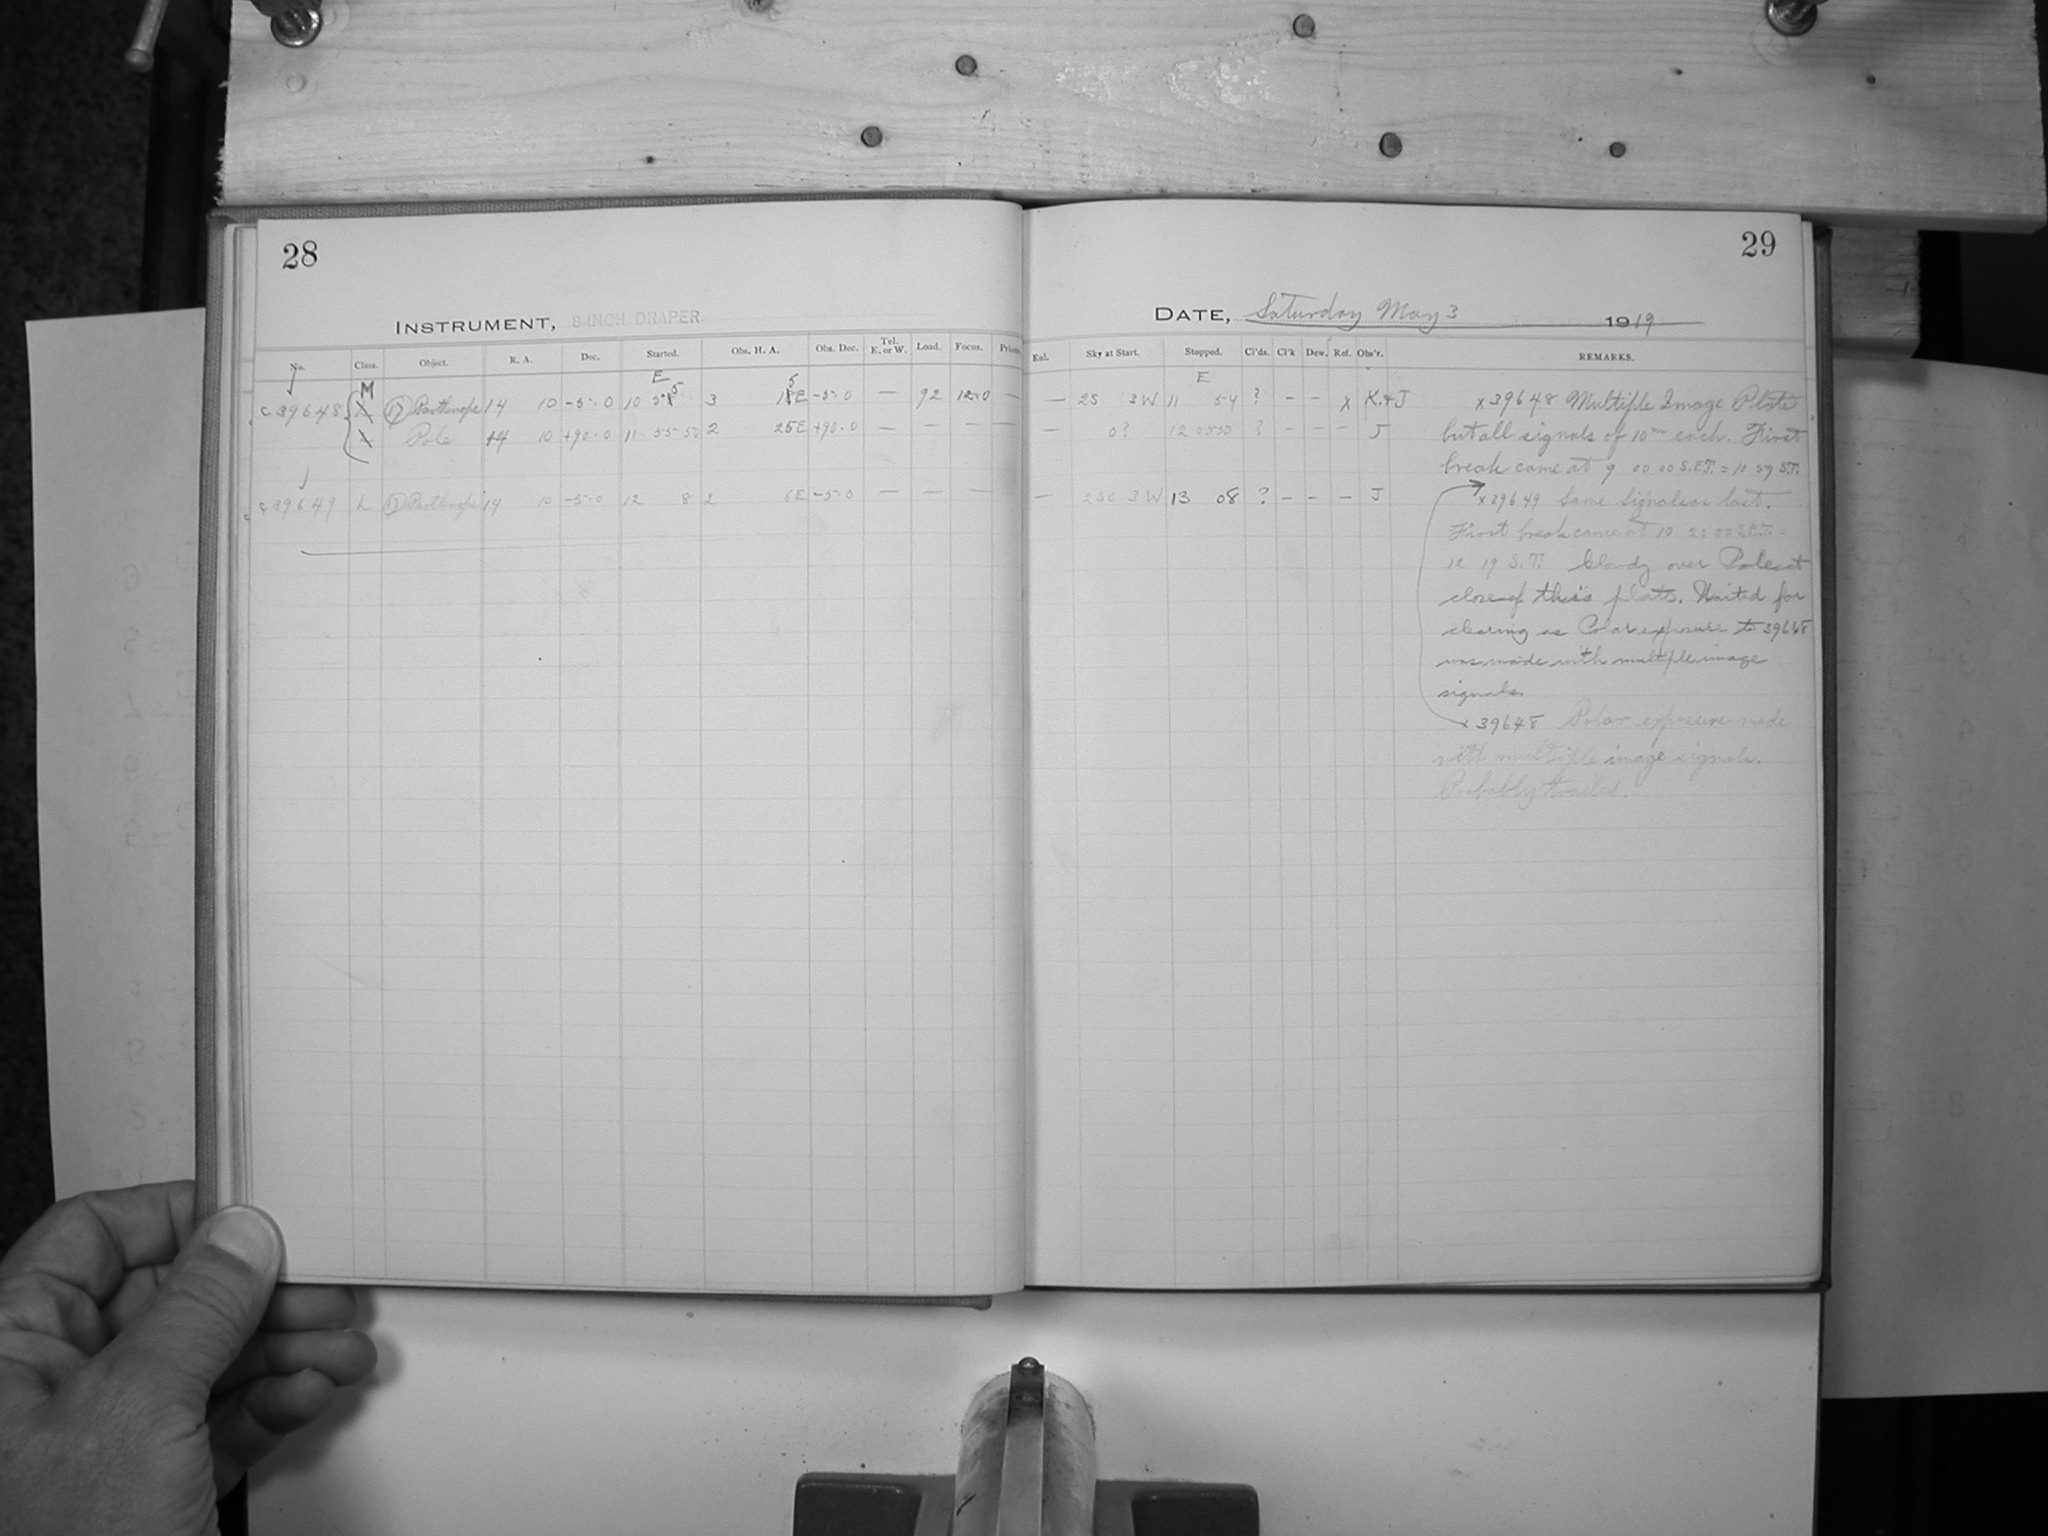 28
INSTRUMENT, 8-INCH DRAPER
No. Class. Object. R. A. Dec. Started. Obs. H. A. Obs. Dec. Tel. E. or W. Load. Focus. Prisms.
E
c 39648 M X (17) Parthenope 14 10 -5.0 10 5 3 E -5.0 — 92 12.0 —
X Pole 14 10 +90.0 11 55 50 2 25E +90.0 — — — —
c 39649 L (17) Parthenope 14 10 -5.0 12 8 2 6E -5.0 — — — —
29
DATE, Saturday May 3 1919
Enl. Sky at Start. Stopped. Cl'ds. Cl'k Dew. Ref. Obs'r. REMARKS.
E
— 2S 3W 11 54 ? — — x K.&J x 39648 Multiple Image Plate
— 0? 12 05 50 ? — — — J but all signals of 10m each. First
break came at 9 00 00 S.E.T. = 10 59 S.T.
— 2S6 3W 13 08 ? — — — J x 39649 Same Signals as last.
First break came at 10 20 00 S.E.T. =
12 19 S.T. Cloudy over Pole at
close of this plate. Waited for
clearing as Polar exposure to 39648
was made with multiple image
signals.
x 39648 Polar exposure made
with multiple image signals.
Probably trailed.